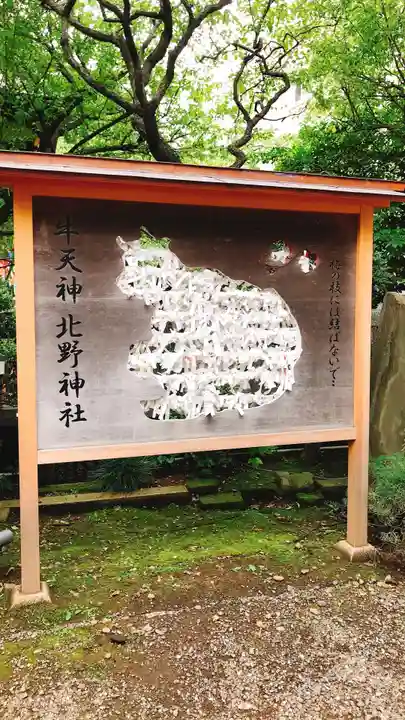 牛天神北野神社
梅の枝には結ばないで…